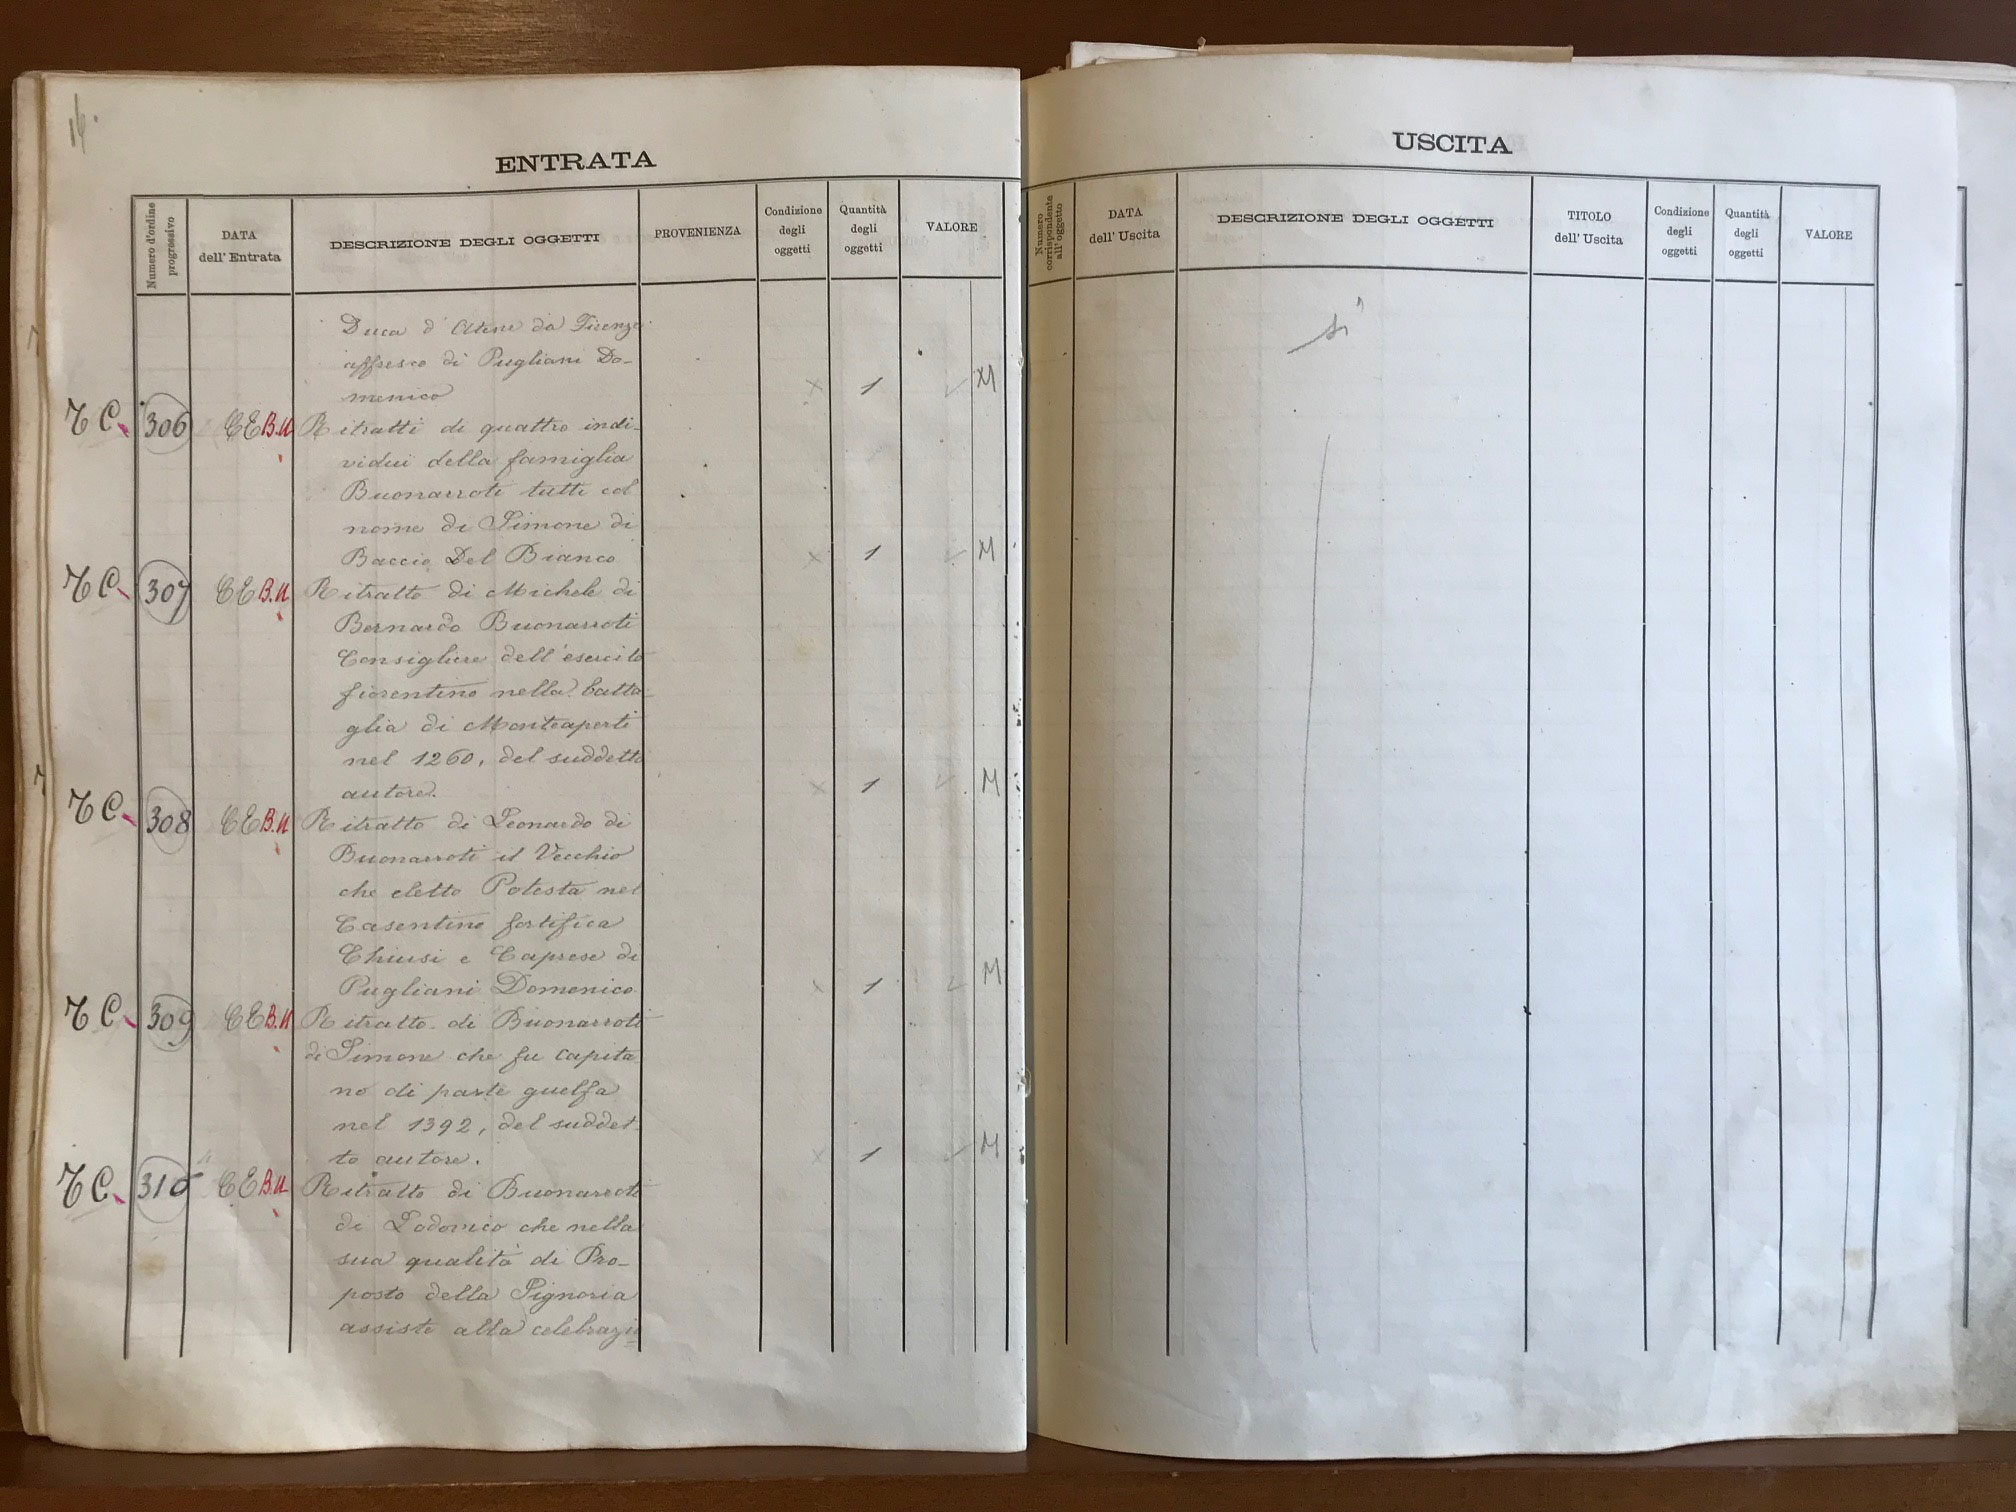 16.
ENTRATA
Numero d'ordine progressivo
DATA dell' Entrata
DESCRIZIONE DEGLI OGGETTI
PROVENIENZA
Condizione degli oggetti
Quantità degli oggetti
VALORE
Duca d' Atene da Firenze
affresco di Pugliani Do-
menico × 1 ✓ M
TC 306 CE B.U Ritratti di quattro indi-
vidui della famiglia
Buonarroti tutti col
nome di Simone di
Baccio Del Bianco × 1 ✓ M
TC 307 CE B.U Ritratto di Michele di
Bernardo Buonarroti
Consigliere dell'esercito
fiorentino nella batta-
glia di Monteaperti
nel 1260, del suddetto
autore. × 1 ✓ M
TC 308 CE B.U Ritratto di Leonardo di
Buonarroti il Vecchio
che eletto Potestà nel
Casentino fortifica
Chiusi e Caprese di
Pugliani Domenico × 1 ✓ M
TC 309 CE B.U Ritratto di Buonarroti
di Simone che fu capita
no di parte guelfa
nel 1392, del suddet-
to autore. × 1 ✓ M
TC 310 CE B.U Ritratto di Buonarroti
di Lodovico che nella
sua qualità di Pro-
posto della Signoria
assiste alla celebrazio
USCITA
Numero corrispondente all'oggetto
DATA dell' Uscita
DESCRIZIONE DEGLI OGGETTI
TITOLO dell' Uscita
Condizione degli oggetti
Quantità degli oggetti
VALORE
sì